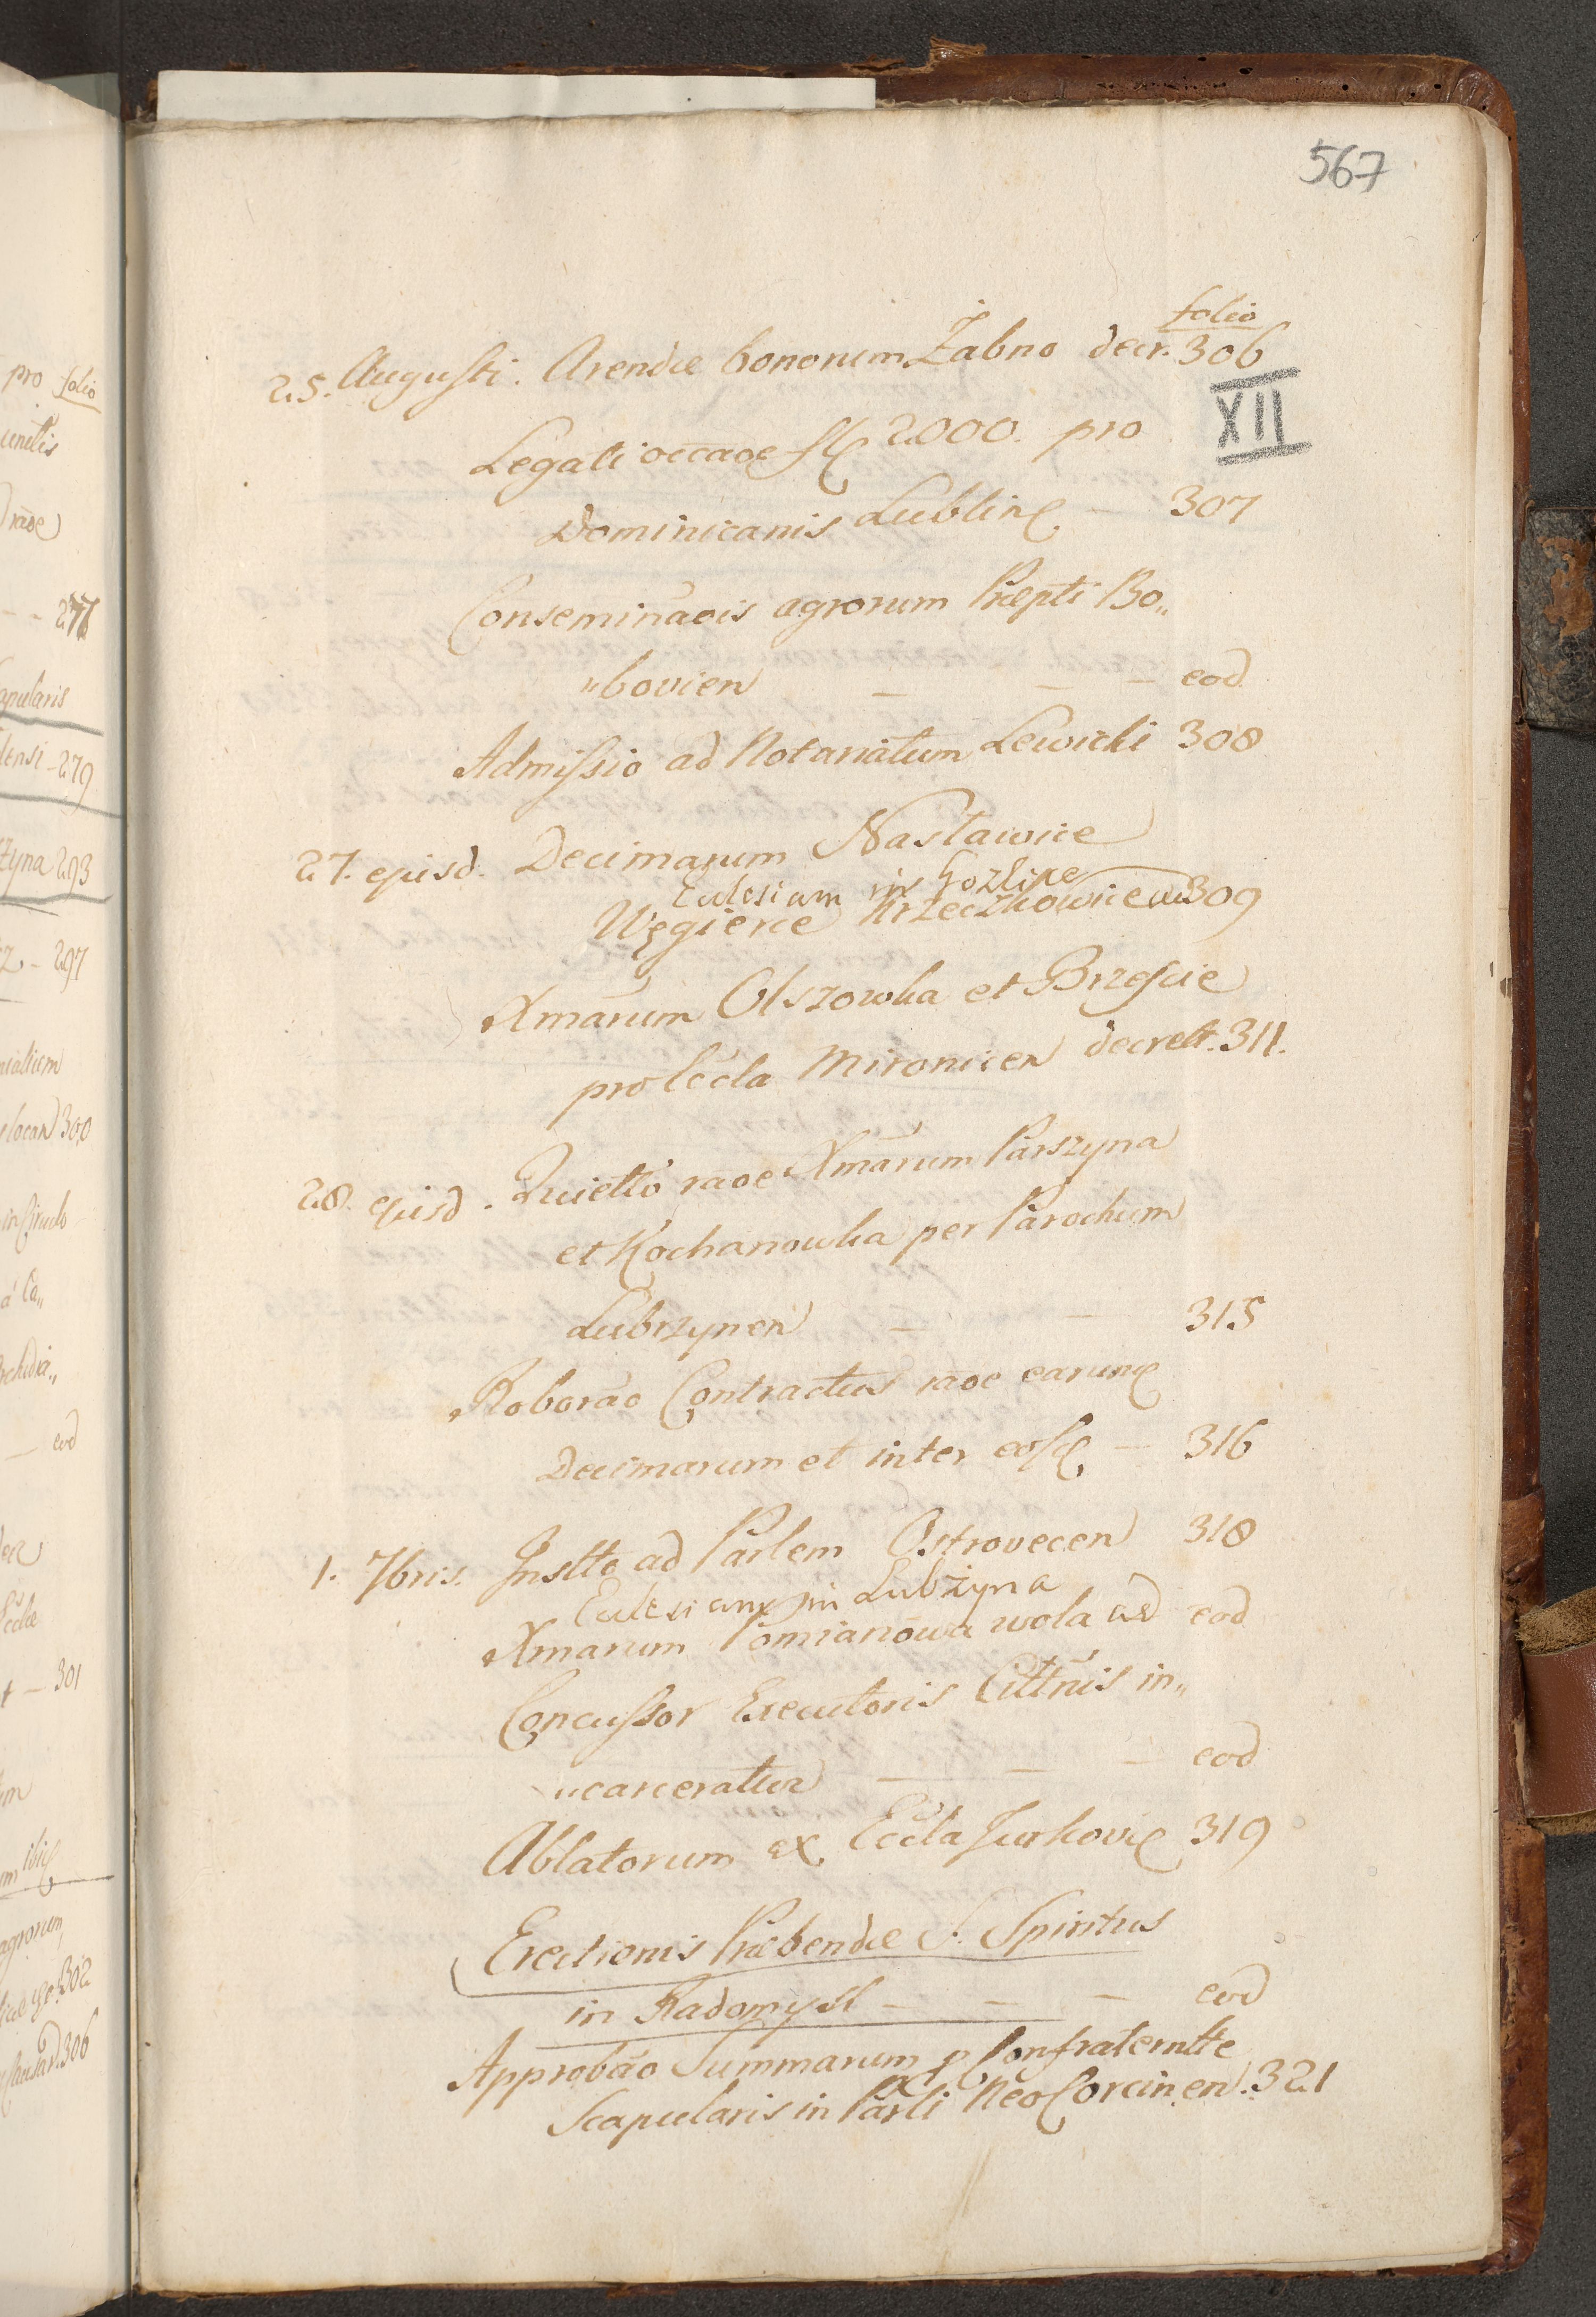 567
folio
25. Augusti. Arendæ bonorum Żabno decr. 306
XII
Legati occãoe fl 2000. pro
Dominicanis Lublin — 307
Conseminãois agrorum Præpti Bo„
„bovien — — — eod
Admissio ad Notariatum Lewicki 308
27. ejusd. Decimarum Nasławice
Eclesiam in Gozlice
Węgierce Krzeczkowice ad 309
Xmãrum Olszowka et Brzescie
pro Eccla Mironicen decrett. 311.
28. ejusd. Quiettio rãoe Xmãrum Parszyna
et Kochanowka per Parochum
Lubrzynen — — 315
Roborão Contractus rãoe earund
Decimarum et inter eosd — 316
1. 7bris. Instto ad Parlem Ostrovecen 318
Eclesiam in Lubzyna
Xmarum Pomianowa wola ad eod
Concussor Executoris Cittnis in„
„carceratur — — — eod
Ablatorum ex Eccla Jurkovic 319
Erectionis Præbendæ S. Spiritus
in Radomysl — — — eod
Approbão Summarum p Confraterntte
Scapularis in Parli Neo Corcinen. 321
pro folio
unitis
rãoe
- - 277
apularis
densi - 279
zyna 293
cz - 297
locan 300
in Circulo
a Ca„
— eod
t — 301
agrorum
302
306